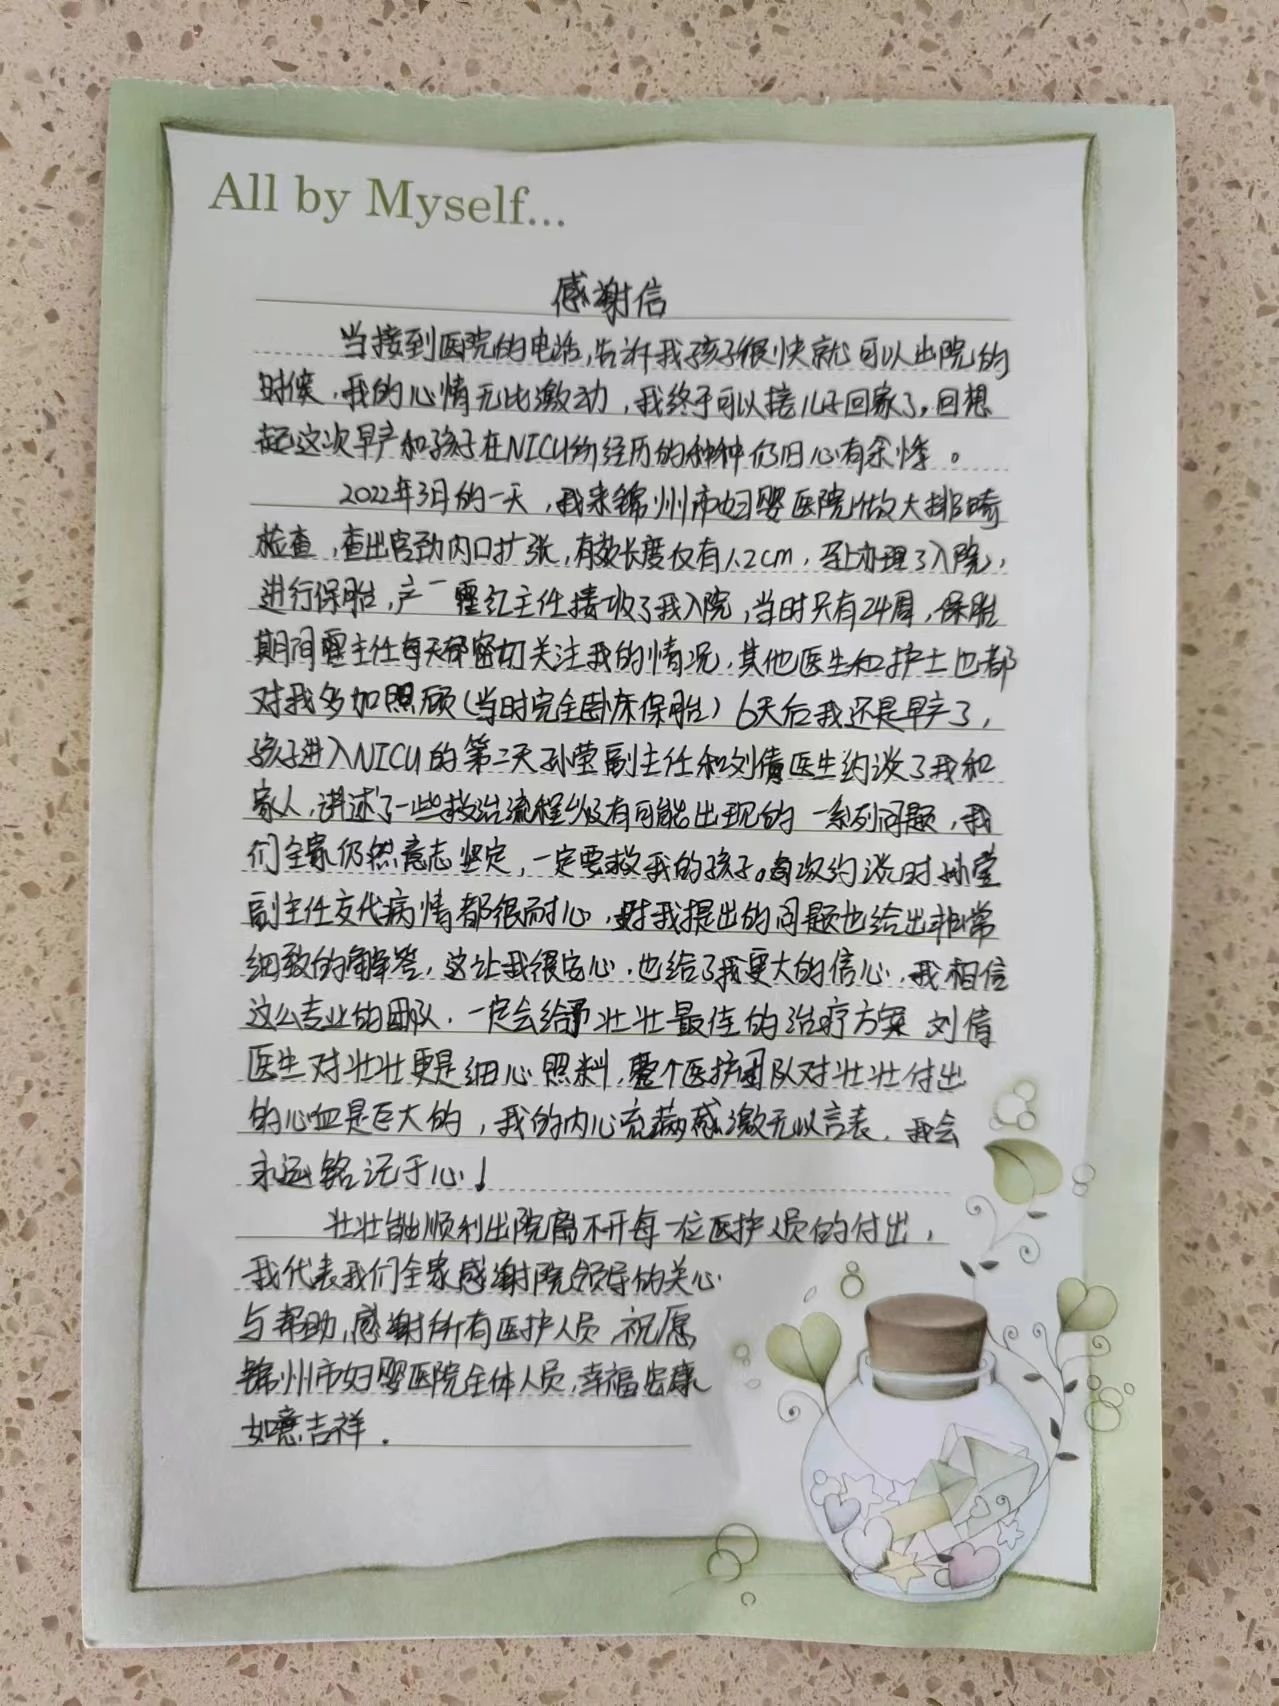 All by Myself...
感谢信
当接到医院的电话,告诉我孩子很快就可以出院的
时候,我的心情无比激动,我终于可以接儿子回家了,回想
起这次早产和孩子在NICU的经历的种种仍旧心有余悸。
2022年3月的一天,我来锦州市妇婴医院做大排畸
检查,查出宫颈内口扩张,有效长度仅有1.2cm,马上办理了入院,
进行保胎,产一 红主任接收了我入院,当时只有24周,保胎
期间 主任每天都密切关注我的情况,其他医生和护士也都
对我多加照顾(当时完全卧床保胎)6天后我还是早产了,
孩子进入NICU的第二天孙莹副主任和刘倩医生约谈了我和
家人,讲述了一些救治流程以及有可能出现的一系列问题,我
们全家仍然意志坚定,一定要救我的孩子。每次约谈时孙莹
副主任交代病情都很耐心,对我提出的问题也给出非常
细致的解答,这让我很安心,也给了我更大的信心,我相信
这么专业的团队,一定会给予壮壮最佳的治疗方案 刘倩
医生对壮壮更是细心照料,整个医护团队对壮壮付出
的心血是巨大的,我的内心充满感激无以言表,我会
永远铭记于心!
壮壮能顺利出院离不开每一位医护人员的付出,
我代表我们全家感谢院领导的关心
与帮助,感谢所有医护人员 祝愿
锦州市妇婴医院全体人员,幸福安康
如意吉祥.